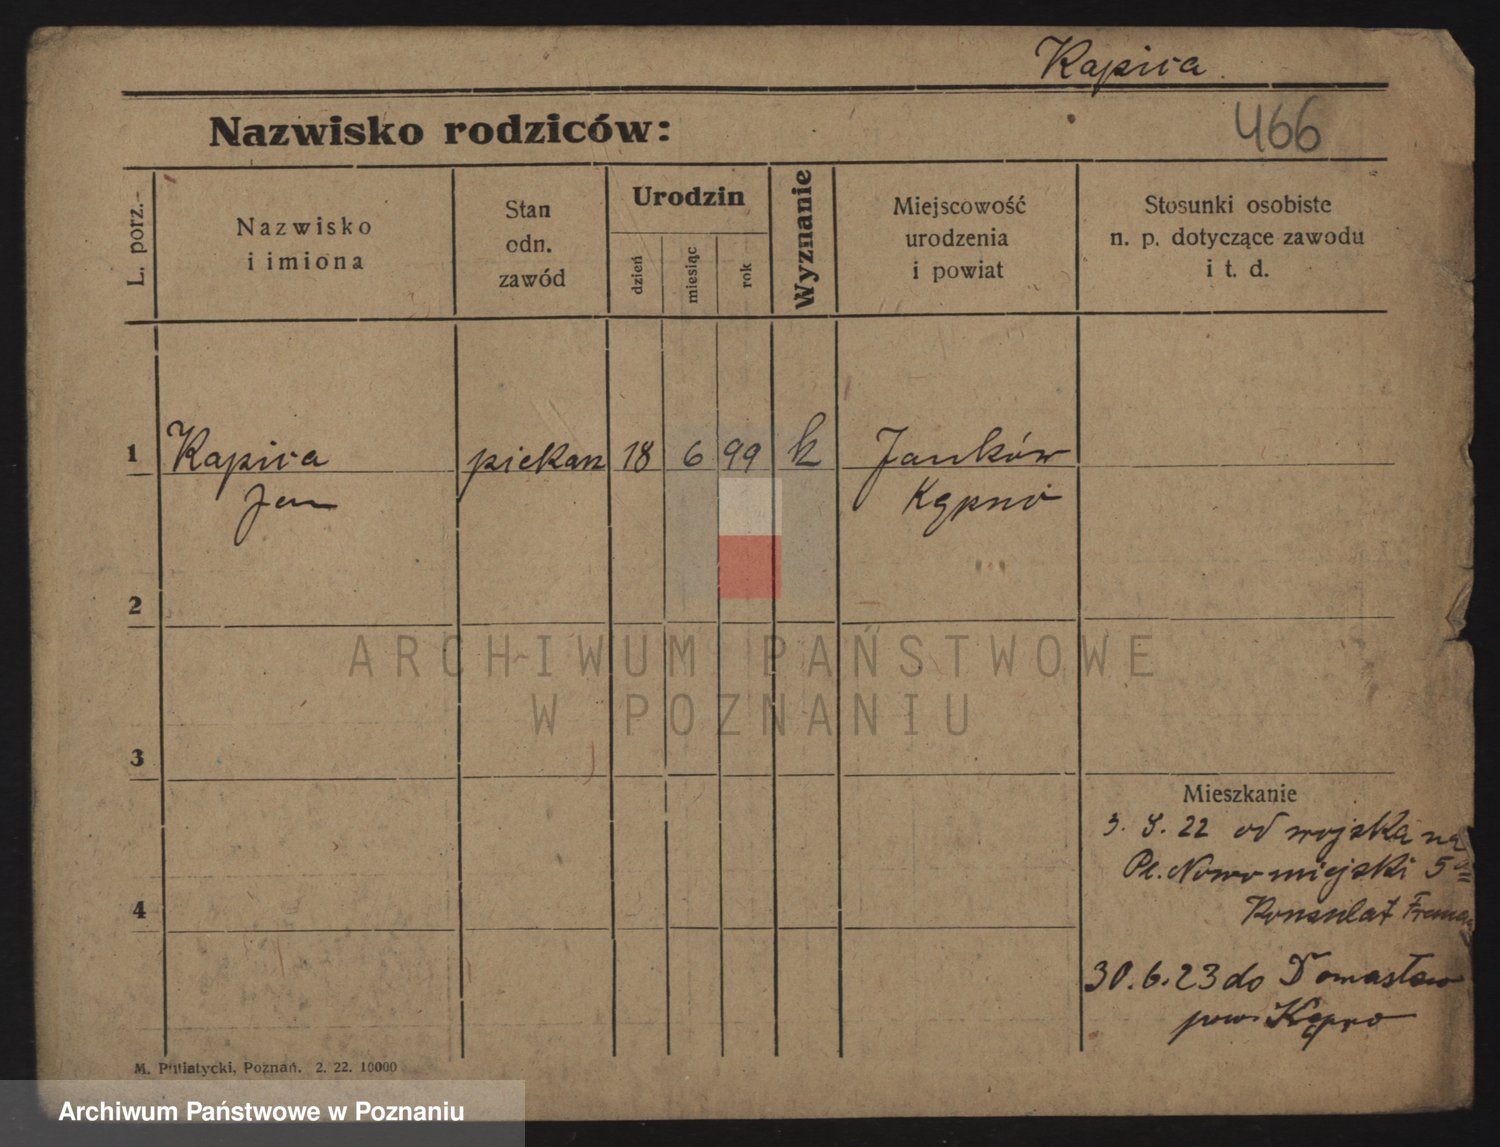 Kapica
466
Nazwisko rodziców:
L. porz.
Nazwisko
i imiona
Stan
odn.
zawód
Urodzin
dzień
miesiąc
rok
Wyznanie
Miejscowość
urodzenia
i powiat
Stosunki osobiste
n. p. dotyczące zawodu
i t. d.
1 Kapica piekarz 18 6 99 k Janków
Jan Kępno
2
3
4
Mieszkanie
3. 5. 22 od wojska na
Pl. Nowomiejski 5a
Konsulat
30.6.23 do Domasłow
pow. Kępno
M. Putiatycki, Poznań. 2. 22. 10000
ARCHIWUM PAŃSTWOWE
W POZNANIU
Archiwum Państwowe w Poznaniu